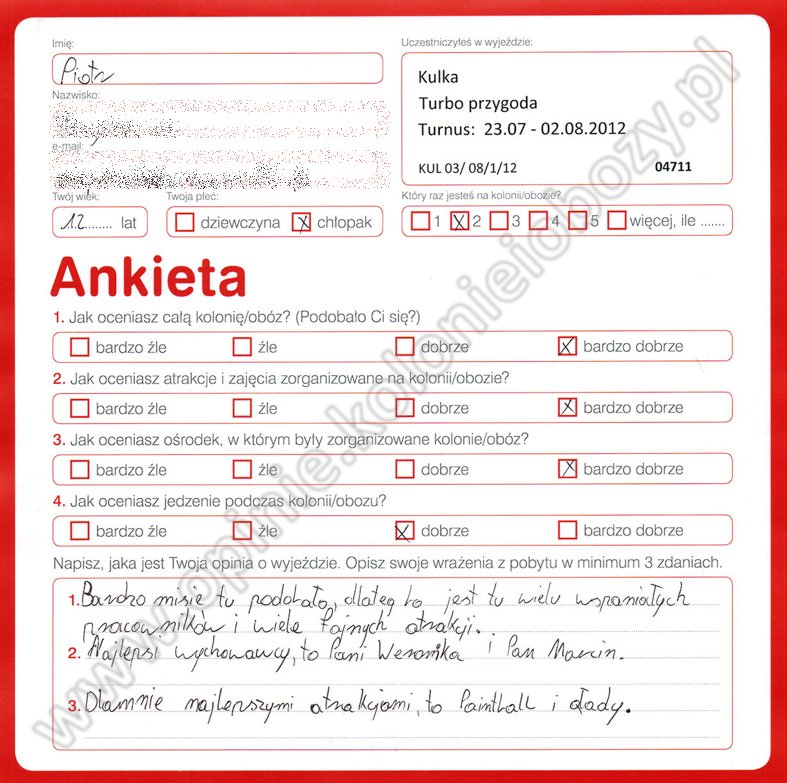 Imię:
Piotr
Uczestniczyłeś w wyjeździe:
Kulka
Turbo przygoda
Turnus: 23.07 - 02.08.2012
KUL 03/ 08/1/12 04711
Nazwisko:
e-mail:
Twój wiek:
12........ lat
Twoja płeć:
dziewczyna X chłopak
Który raz jesteś na kolonii/obozie?
1 X 2 3 4 5 więcej, ile .......
Ankieta
1. Jak oceniasz całą kolonię/obóz? (Podobało Ci się?)
bardzo źle źle dobrze X bardzo dobrze
2. Jak oceniasz atrakcje i zajęcia zorganizowane na kolonii/obozie?
bardzo źle źle dobrze X bardzo dobrze
3. Jak oceniasz ośrodek, w którym były zorganizowane kolonie/obóz?
bardzo źle źle dobrze X bardzo dobrze
4. Jak oceniasz jedzenie podczas kolonii/obozu?
bardzo źle źle X dobrze bardzo dobrze
Napisz, jaka jest Twoja opinia o wyjeździe. Opisz swoje wrażenia z pobytu w minimum 3 zdaniach.
1. Bardzo misię tu podobało, dlateg bo jest tu wielu wspaniałych
pracowników i wiele fajnych atrakcji.
2. Najlepsi wychowawcy, to Pani Weronika i Pan Marcin.
3. Dlamnie najlepszymi atrakcjami, to Paintball i
www.opinie.kolonieiobozy.pl